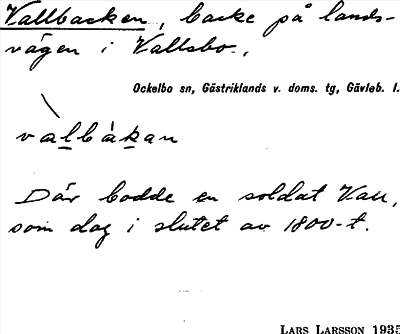 Vallbacken, backe på lands-
vägen i Vallsbo.,
Ockelbo sn, Gästriklands v. doms. tg, Gävleb. l.
valbàkan
Där bodde en soldat Vall,
som dog i slutet av 1800-t.
LARS LARSSON 1935